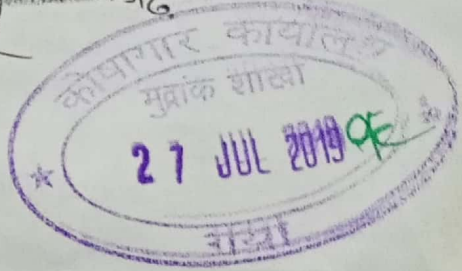 कोषागार कार्यालय
मुद्रांक शाखा
27 JUL 2019